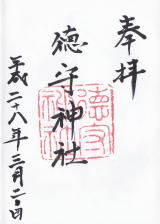 奉拝
徳守神社
徳守神社
平成二十八年三月二日